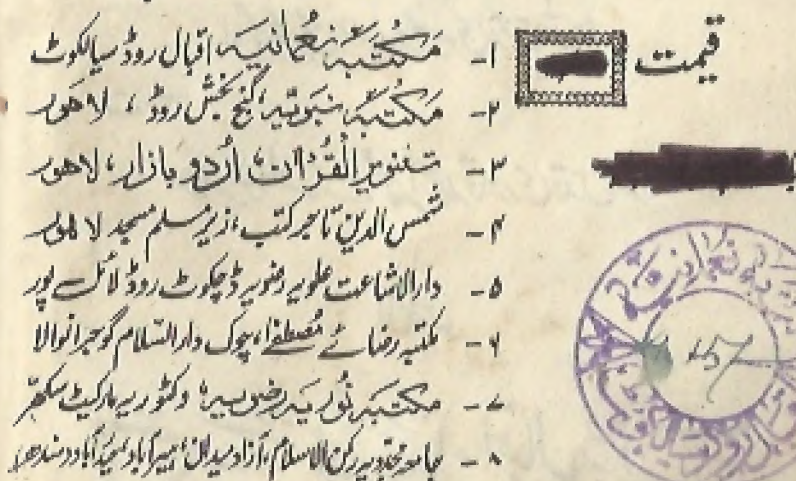 قیمت
۱- مکتبہ نعمانیہ اقبال روڈ سیالکوٹ
۲- مکتبہ نبویہ، گنج بخش روڈ، لاہور
۳- تنویر القرآن، اُردو بازار، لاہور
۴- شمس الدین تاجر کتب، زیر مسلم مسجد لاہور
۵- دارالاشاعت علویہ رضویہ ڈچکوٹ روڈ لائل پور
۶- مکتبہ رضائے مُصطفےٰ، چوک دارالسّلام گوجرانوالا
۷- مکتبہ نُوریہ رضویہ، وکٹوریہ مارکیٹ سکھر
۸- جامعہ مجددیہ رکن الاسلام، آزاد میدان، ہیرآباد، حیدرآباد (سندھ)